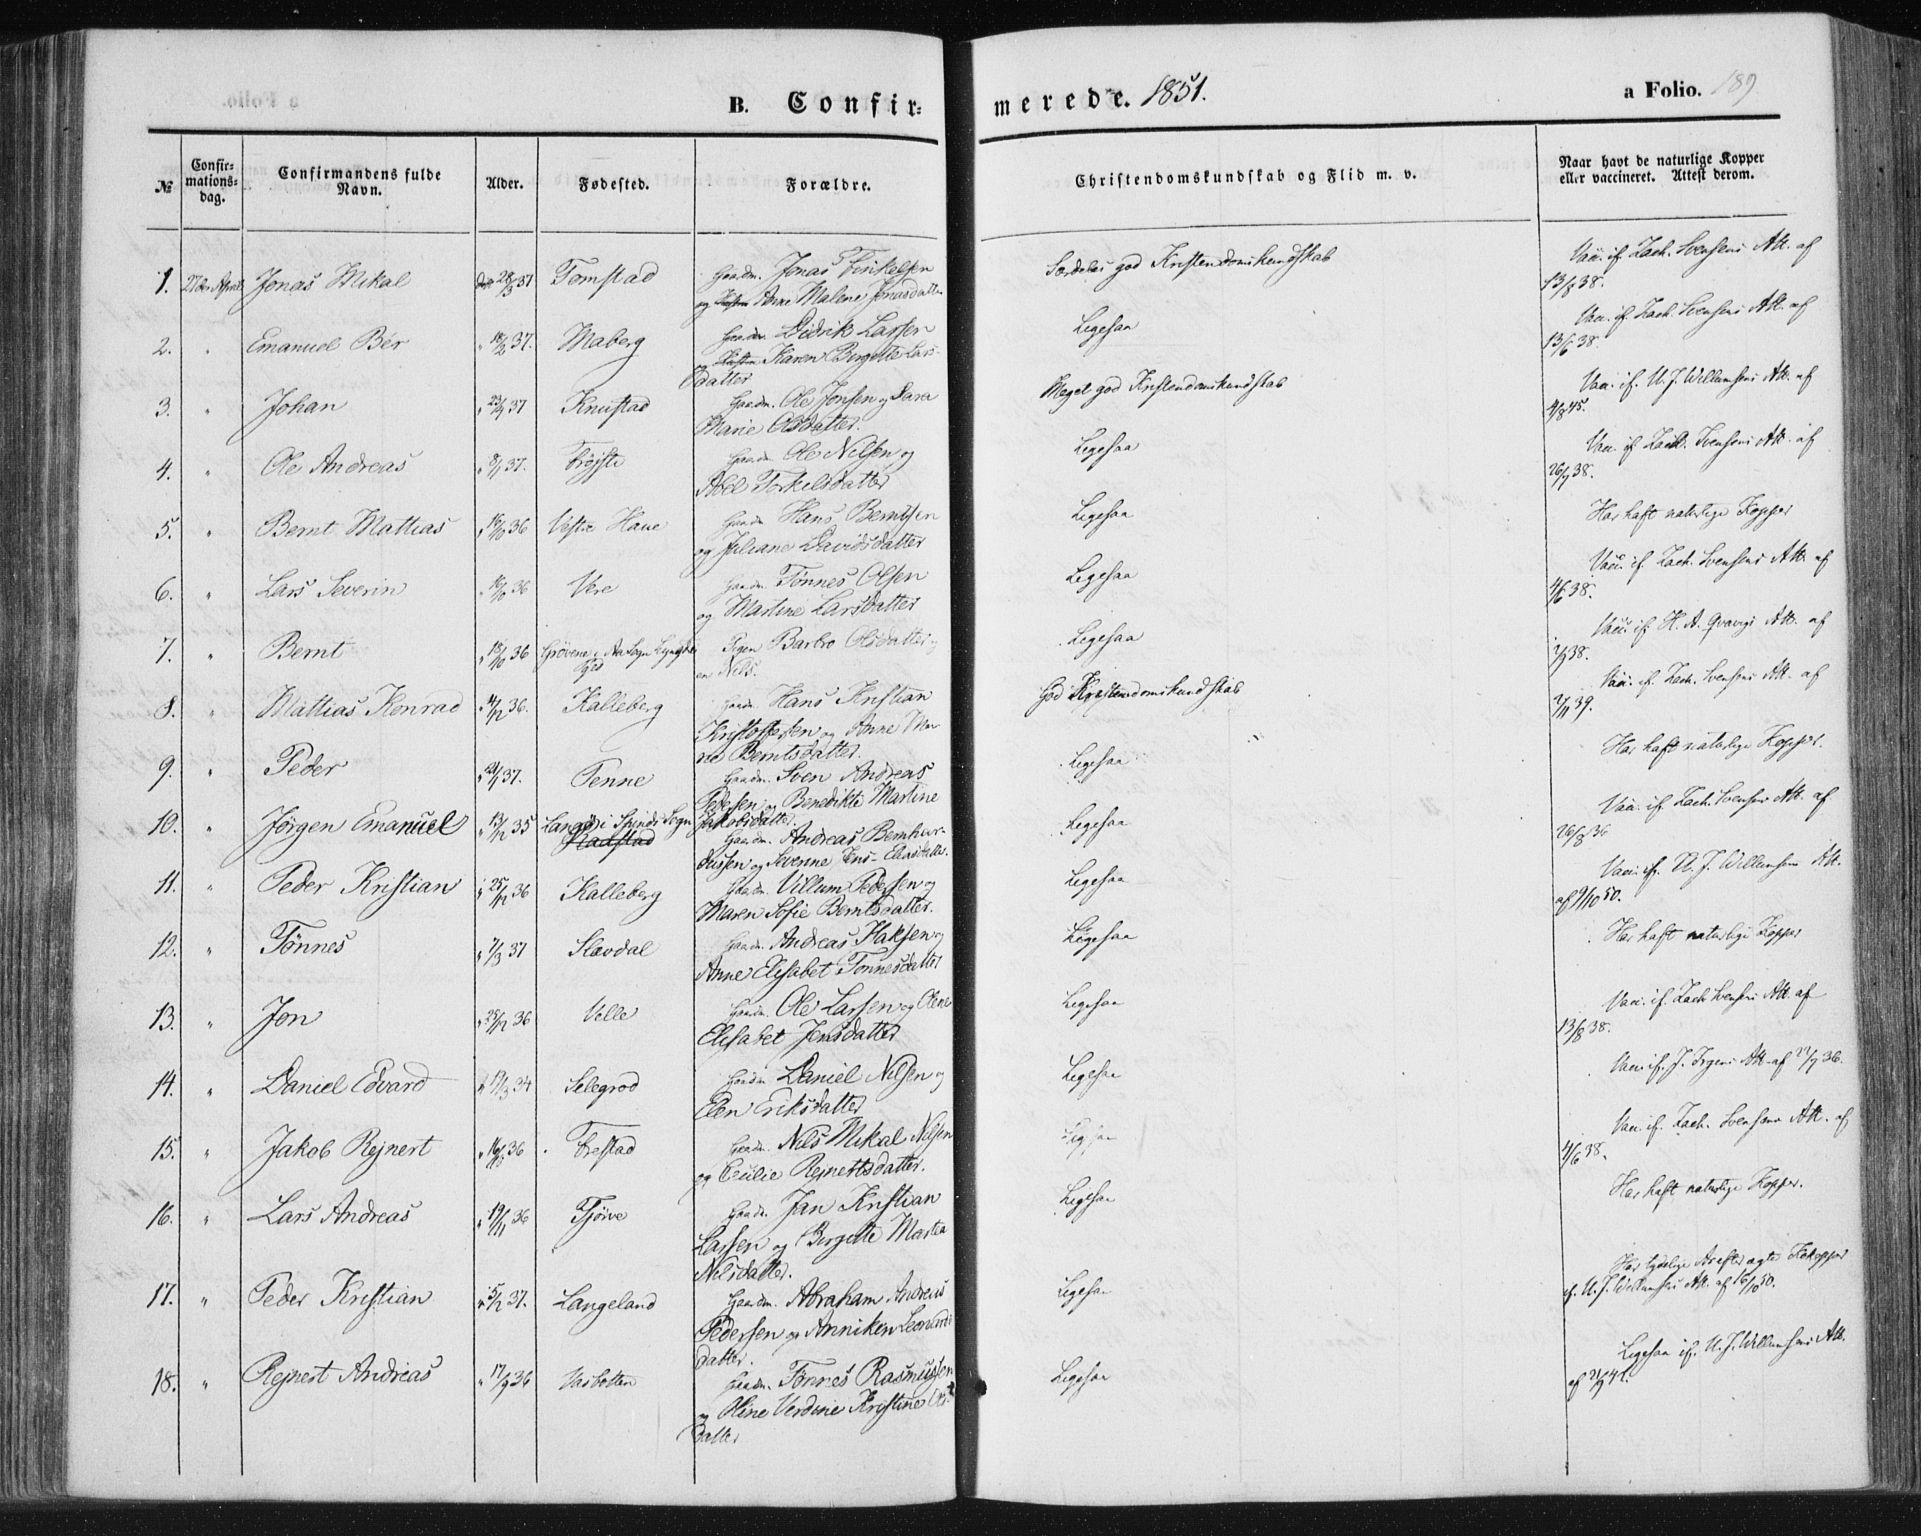 B. Confirmerede. 1851. a Folio. 189
№ Confirmationsdag. Confirmandens fulde Navn. Alder. Fødested. Forældre. Christendomskundskab og Flid m. v. Naar havt de naturlige Kopper eller vaccineret. Attest derom.
1. 27den April Jonas Mikal 28/3 37 Tomstad Gaardm. Jonas Tørkelsen Særdeles god Kristendomskundskab Vacc. if. Zach. Svensens Att. af
og Anne Malene Jonasdatter 13/8 38.
2. " Emanuel Bér " 18/2 37. Maberg Gaardm. Didrik Larsen Ligesaa Vacc. if. Zach. Svensens Att. af
Karen Birgitte Lars- 13/6 38.
datter
3. " Johan " 23/4 37 Knustad Gaardm. Ole Jonsen og Sara Meget god Kristendomskundskab Vacc. if. U. J. Willumsens Att. af
Marie Olsdatter. 4/8 45.
4. " Ole Andreas " 8/1 37. Trøjste Gaardm. Ole Nilsen og Ligesaa Vacc. if. Zach. Svensens Att. af
Abel Torkelsdatter 26/7 38.
5. " Bernt Mattias " 19/10 36 Vestre Haue Gaardm. Hans Berntsen Ligesaa Har haft naturlige Kopper
og Juliane Davidsdatter
6. " Lars Severin " 16/10 36 Vere Gaardm. Tønnes Olsen Ligesaa Vacc. if. Zach. Svensens Att. af
og Martine Larsdatter 4/6 38.
7. " Bernt " 18/10 36 Grøvene i Aa Sogn Lyngdals Pigen Barbro Olsdatter Ligesaa Vacc. if. H. A. Qvavigs Att. af
Pgd en Nils. 7/9 38.
8. " Mattias Konrad " 4/12 36. Kalleberg Gaardm. Hans Kristian God Kristendomskundskab Vacc. if. Zach. Svensens Att. af
Kristoffersen og Anne Ma- 7/11 39.
rie Berntsdatter.
9. " Peder " 21/1 37. Penne Gaardm. Sven Andreas Ligesaa Har haft naturlige Kopper.
Pedersen og Benedikte Martine
Jakobsdatter.
10. " Jørgen Emanuel " 13/12 35 Langø i Spinds Sogn Gaardm. Andreas Bernhar- Ligesaa Vacc. if. Zach. Svensens Att. af
Radstad dussen og Severine Jens-Eliasdatter. 26/8 36
11. " Peder Kristian " 25/12 36 Kalleberg Gaardm. Villum Pedersen og Ligesaa Vacc. if. U. J. Willumsens Att.
Maren Sofie Berntsdatter. af 9/10 50.
12. " Tønnes " 7/3 37 Slævdal Gaardm. Andreas Haksen og Ligesaa Har haft naturlige Kopper
Anne Elisabet Tønnesdatter
13. " Jon " 28/12 36 Velle Gaardm. Ole Larsen og Olene Ligesaa Vacc. if. Zach. Svensens Att. af
Elisabet Jensdatter 13/8 38.
14. " Daniel Edvard " 17/3 34 Selegrod Gaardm. Daniel Nilsen og Ligesaa Vacc. if. J. Irgens Att. af 27/7 36.
Elen Eriksdatter
15. " Jakob Rejnert " 16/10 36 Frestad Gaardm. Nils Mikal Nilsen Ligesaa Vacc. if. Zach. Svensens Att. af
og Cecilie Rejnertsdatter. 4/6 38.
16. " Lars Andreas " 19/11 36 Tjørve Gaardm. Jan Kristian Ligesaa Har haft naturlige Kopper.
Larsen og Birgitte Martea
Nilsdatter.
17. " Peder Kristian " 5/2 37. Langeland Gaardm. Abraham Andreas Ligesaa Har tydelige Ar efter ægte Kokopper
Pedersen og Anniken Leonards if. U. J. Willumsens Att. af 16/10 50.
datter.
18. " Rejnert Andreas " 17/9 36 Vasbotten Gaardm. Tønnes Rasmussen Ligesaa Ligesaa if. U. J. Willumsens Att.
og Oline Verdine Kristine Ols- af 21/9 41.
datter